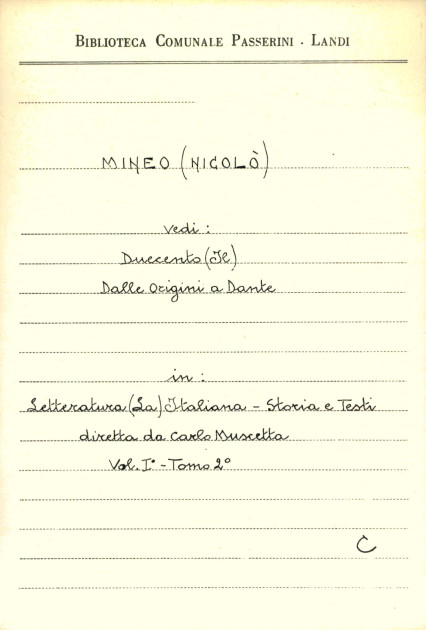 BIBLIOTECA COMUNALE PASSERINI - LANDI
MINEO (NICOLÒ)
vedi:
Duecento (Il)
Dalle origini a Dante
in:
Letteratura (La) Italiana - Storia e Testi
diretta da Carlo Muscetta
Vol. I° - Tomo 2°
C